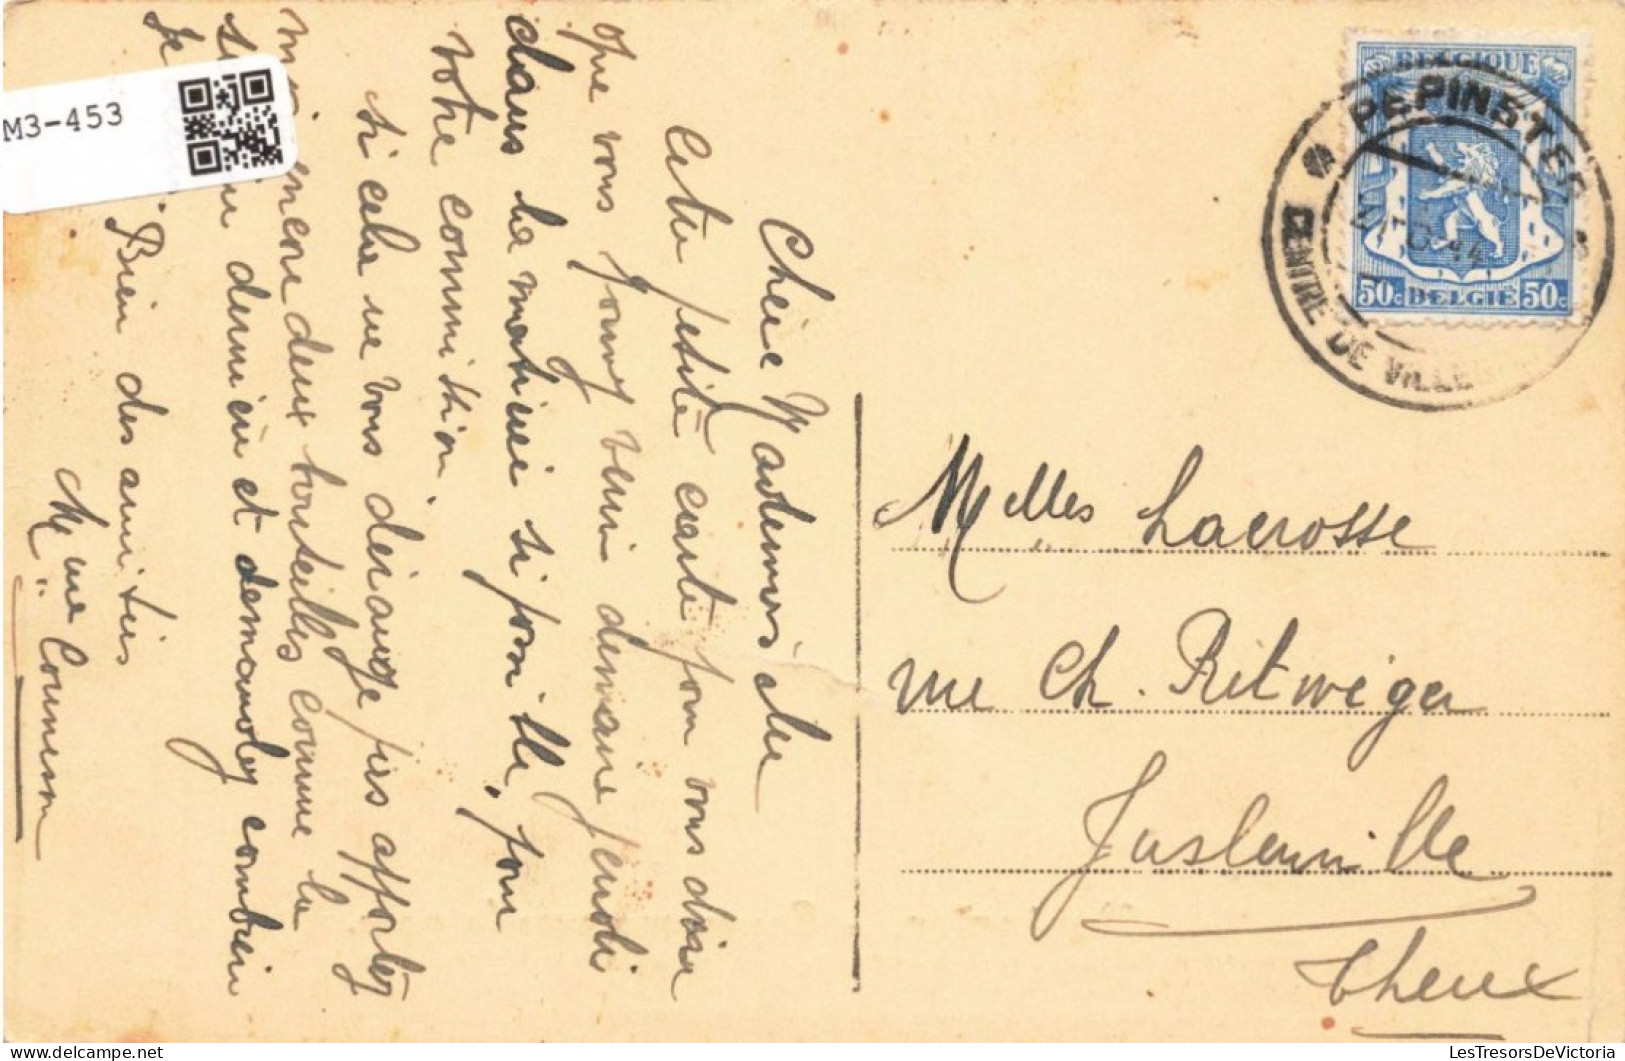 M3-453
Chère Mademoiselle
Cette petite carte pour vous dire
que vous pouvez venir demain jeudi
dans la matinée si possible, pour
votre commition.
Si cela ne vous dérange pas apportez
moi encore deux bouteilles comme la
dernière et demandez combien
Je
Bien des amitiés
Mme
BELGIQUE
50c BELGIË 50c
PEPINSTER
CENTRE DE VILLE
Melles Lacrosse
rue Ch. Ritweger
Juslenville
Theux
LesTresorsDeVictoria